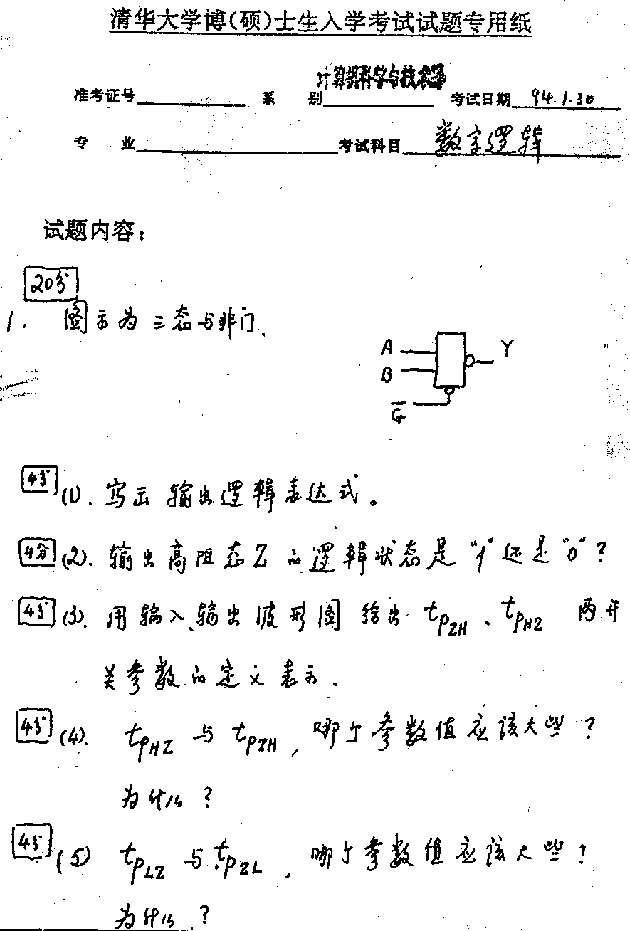 清华大学博(硕)士生入学考试试题专用纸
准考证号 系 别 计算机科学与技术系 考试日期 94.1.30
专 业 考试科目 数字逻辑
试题内容：
20分
1. 图示为三态与非门.
A
B
Y
G̅
4分 (1). 写出输出逻辑表达式。
4分 (2). 输出高阻态Z的逻辑状态是"1"还是"0"?
4分 (3). 用输入、输出波形图给出 tpZH、tpHZ 两开
关参数的定义表示.
4分 (4). tpHZ 与 tpZH, 哪个参数值应该大些?
为什么?
4分 (5) tpLZ 与 tpZL, 哪个参数值应该大些?
为什么?